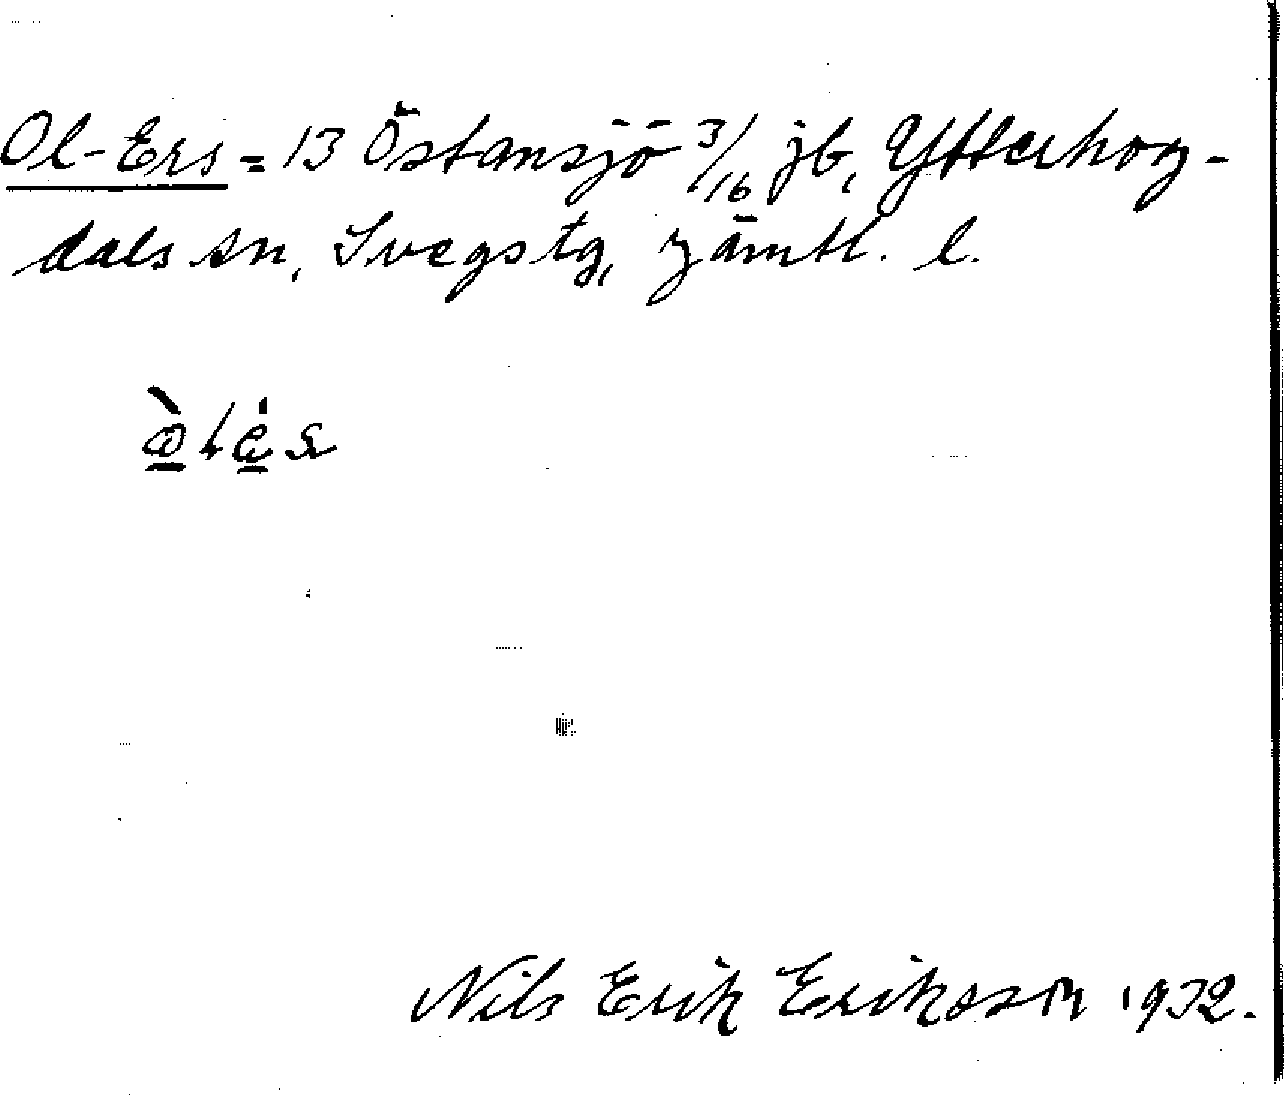 Ol-Ers = 13 Östansjö 3/16 jb, Ytterhog-
dals sn, Svegs tg, Jämtl. l.
Nils Erik Eriksson 1932.